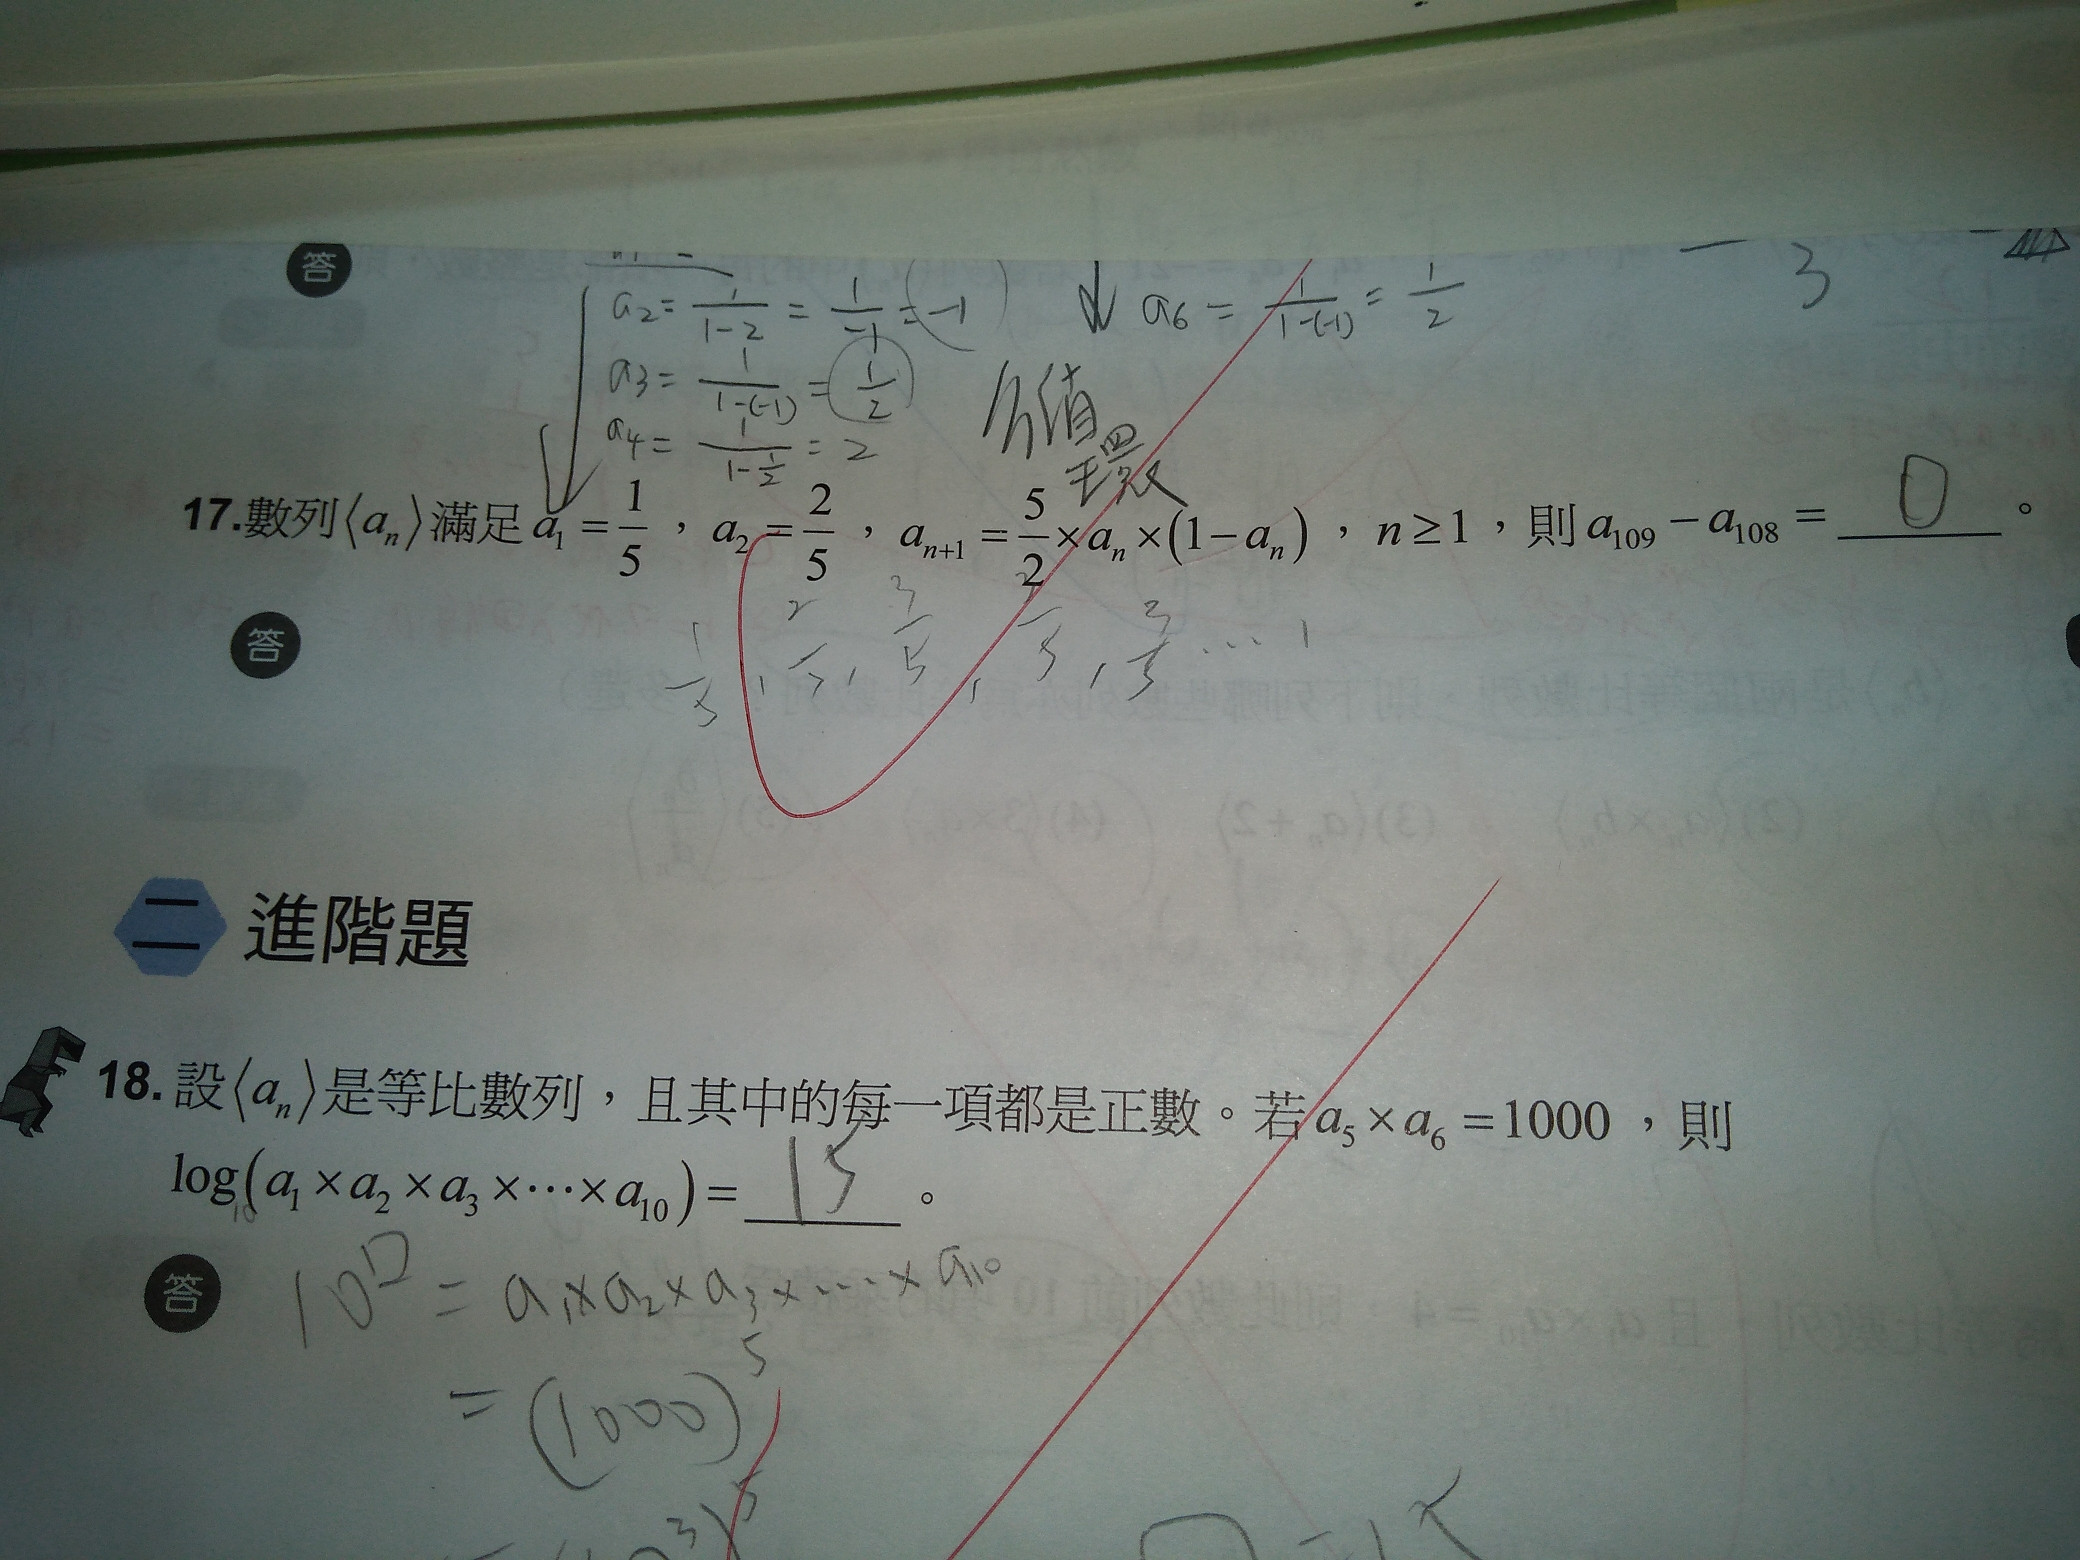 答
a2 = 1/(1-2) = 1/-1 = -1
a3 = 1/(1-(-1)) = 1/2
a4 = 1/(1-1/2) = 2
↓ a6 = 1/(1-(-1)) = 1/2
3
17.數列⟨aₙ⟩滿足 a₁ = 1/5 , a₂ = 2/5 , aₙ₊₁ = 5/2 × aₙ × (1 - aₙ) , n ≥ 1 , 則 a₁₀₉ - a₁₀₈ = 0 。
答
1/5 , 2/5 , 3/5 , 3/5 , 3/5 ...
二 進階題
18. 設⟨aₙ⟩是等比數列,且其中的每一項都是正數。若 a₅ × a₆ = 1000 ,則
log(a₁ × a₂ × a₃ × ⋯ × a₁₀) = 15 。
10
答
= a₁ × a₂ × a₃ × ... × a₁₀
= (1000)⁵